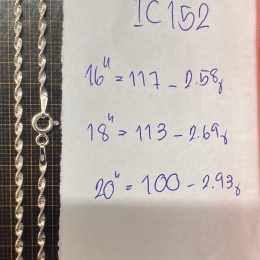 IC152
16" = 117 - 2.58g
18" = 113 - 2.69g
20" = 100 - 2.93g